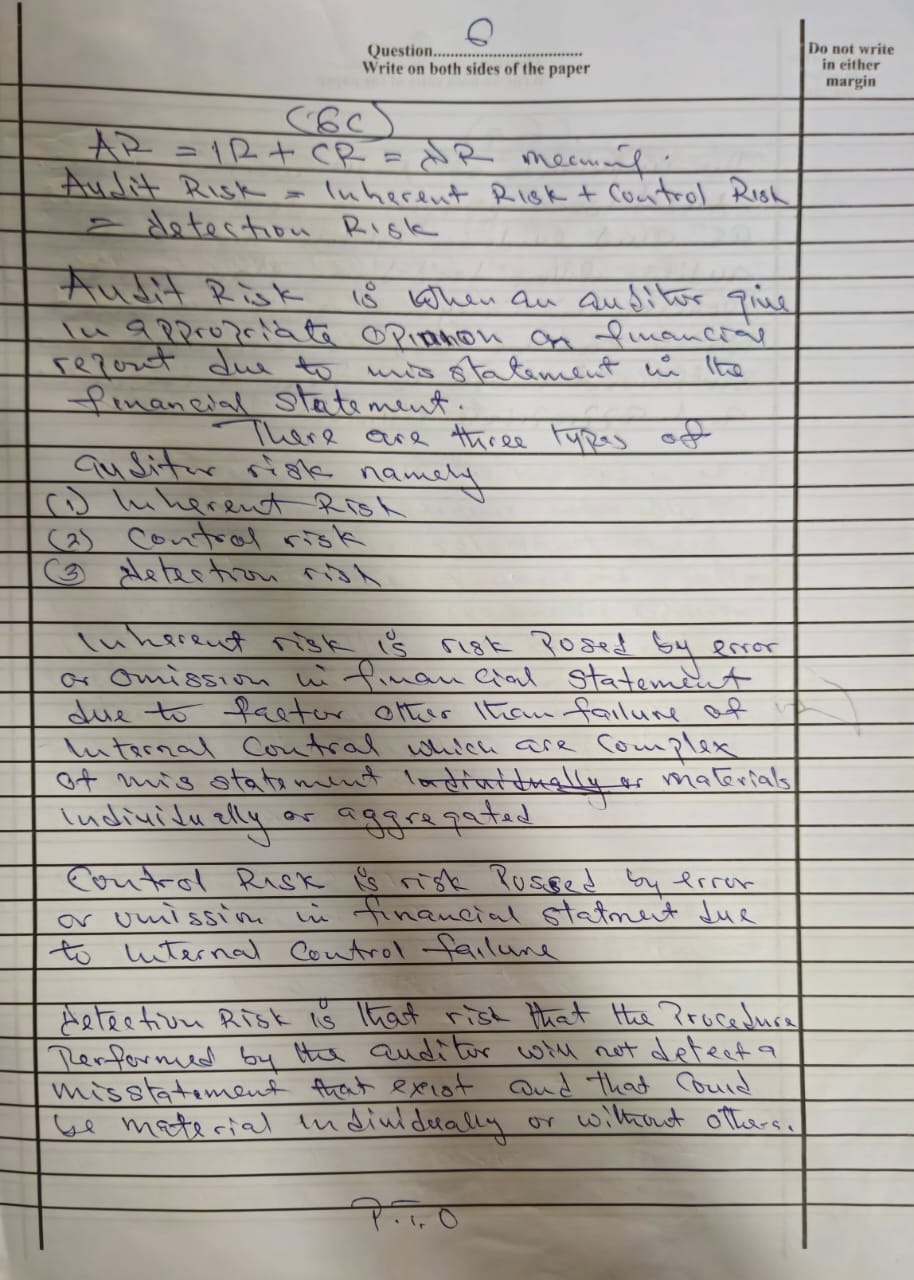 6
Question....................................
Write on both sides of the paper
Do not write
in either
margin
(6C)
AR = IR + CR = DR meaning.
Audit Risk = Inherent Risk + Control Risk
= detection Risk
Audit Risk is when an auditor give
in appropriate Opinanon on financial
report due to mis statement in the
financial statement.
There are three types of
auditor risk namely
(1) Inherent Risk
(2) Control risk
(3) detection risk
Inherent risk is risk Posed by error
or omission in financial statement
due to factor other than failure of
Internal Control which are Complex
of mis statement Individually or materials
Individually or aggregated
Control Risk is risk Possed by error
or omission in financial statment due
to Internal Control failure
detection Risk is that risk that the Procedure
Performed by the auditor will not detect a
misstatement that exist and that Could
be material individually or without others.
P.T.O